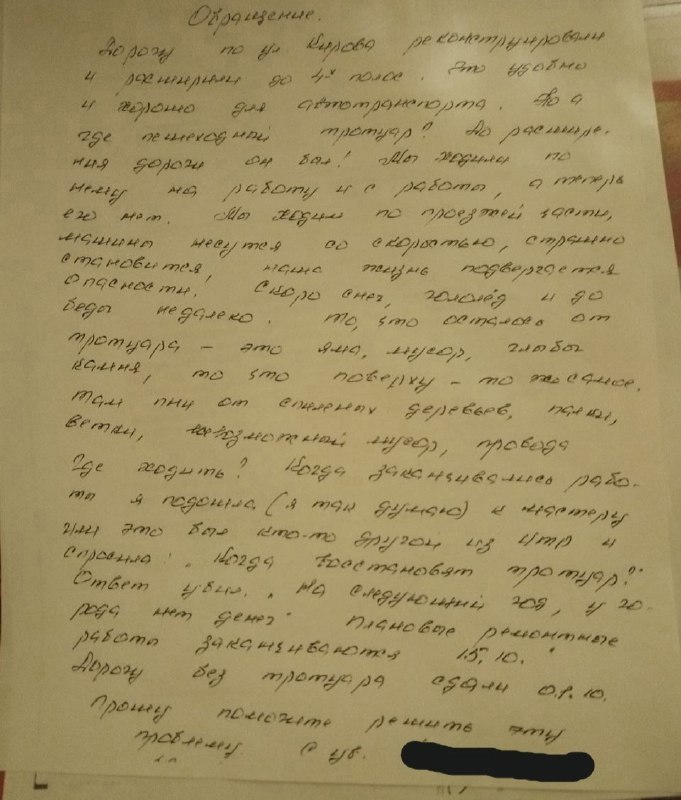 Обращение.
Дорогу по ул. Кирова реконструировали
и расширили до 4х полос. Это удобно
и хорошо для автотранспорта. Но а
где пешеходный тротуар? До расшире-
ния дороги он был! Мы ходили по
нему на работу и с работы, а теперь
его нет. Мы ходим по проезжей части,
машины несутся со скоростью, страшно
становится, наша жизнь подвергается
опасности! Скоро снег, гололёд и до
беды недалеко. То, что осталось от
тротуара – это яма, мусор, глыбы
камня, то что поверху – то же самое.
Там пни от спиленых деревьев, палки,
ветки, всевозможный мусор, провода
Где ходить? Когда заканчивались рабо-
ты я подошла (я так думаю) к мастеру
или это был кто-то другой из ИТР и
спросила: „Когда восстановят тротуар?"
Ответ убил. „На следующий год, у го-
рода нет денег" Плановые ремонтные
работы заканчиваются 15.10.
Дорогу без тротуара сдали 01.10.
Прошу помогите решить эту
проблему С ув.